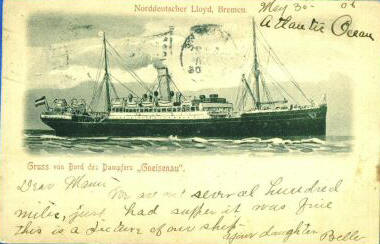 Norddeutscher Lloyd, Bremen.
May 30 - 06
Atlantic Ocean
Gruss von Bord des Dampfers „Gneisenau".
Dear Mami
We are out several hundred
miles, just had supper it was fine
this is a picture of our ship
your daughter Belle